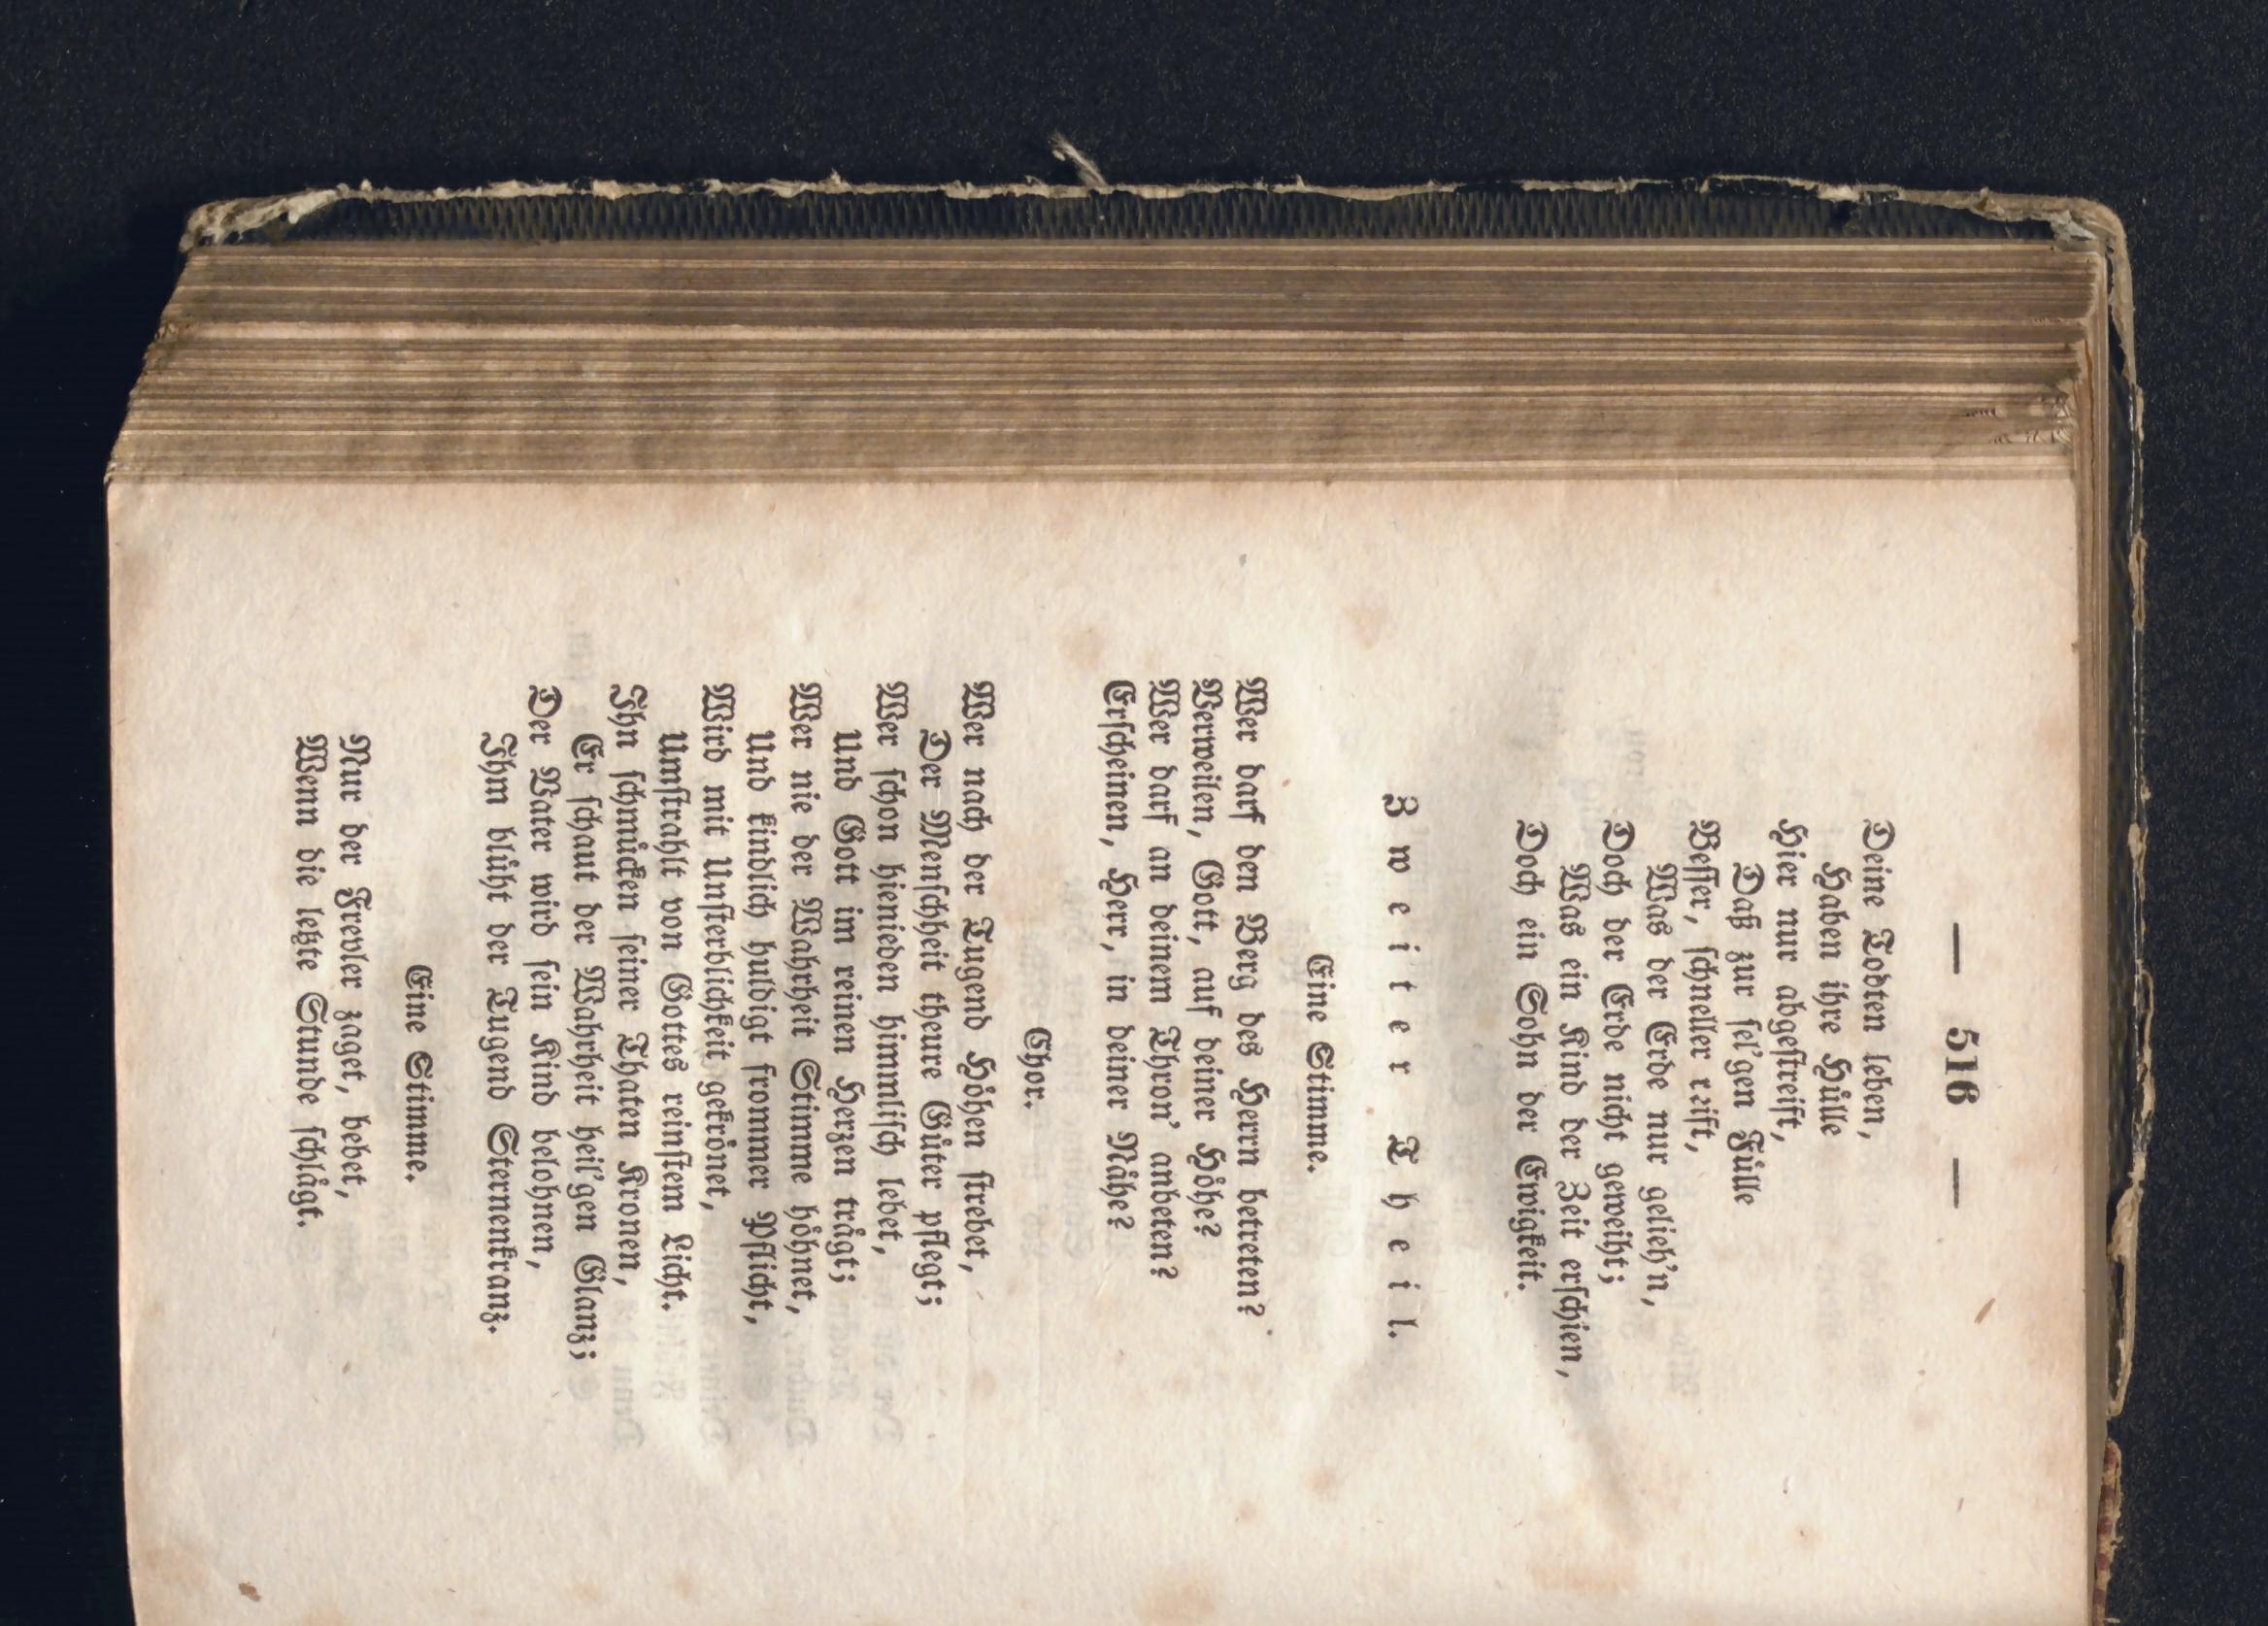 — 516 —
Deine Todten leben,
Haben ihre Hülle
Hier nur abgestreift,
Daß zur sel'gen Fülle
Besser, schneller reift,
Was der Erde nur gelieh'n,
Doch der Erde nicht geweiht;
Was ein Kind der Zeit erschien,
Doch ein Sohn der Ewigkeit.
Zweiter Theil.
Eine Stimme.
Wer darf den Berg des Herrn betreten?
Verweilen, Gott, auf deiner Höhe?
Wer darf an deinem Thron' anbeten?
Erscheinen, Herr, in deiner Nähe?
Chor.
Wer nach der Tugend Höhen strebet,
Der Menschheit theure Güter pflegt;
Wer schon hienieden himmlisch lebet,
Und Gott im reinen Herzen trägt;
Wer nie der Wahrheit Stimme höhnet,
Und kindlich huldigt frommer Pflicht,
Wird mit Unsterblichkeit gekrönet,
Umstrahlt von Gottes reinstem Licht.
Ihn schmücken seiner Thaten Kronen,
Er schaut der Wahrheit heil'gen Glanz;
Der Vater wird sein Kind belohnen,
Ihm blüht der Tugend Sternenkranz.
Eine Stimme.
Nur der Frevler zaget, bebet,
Wenn die letzte Stunde schlägt.